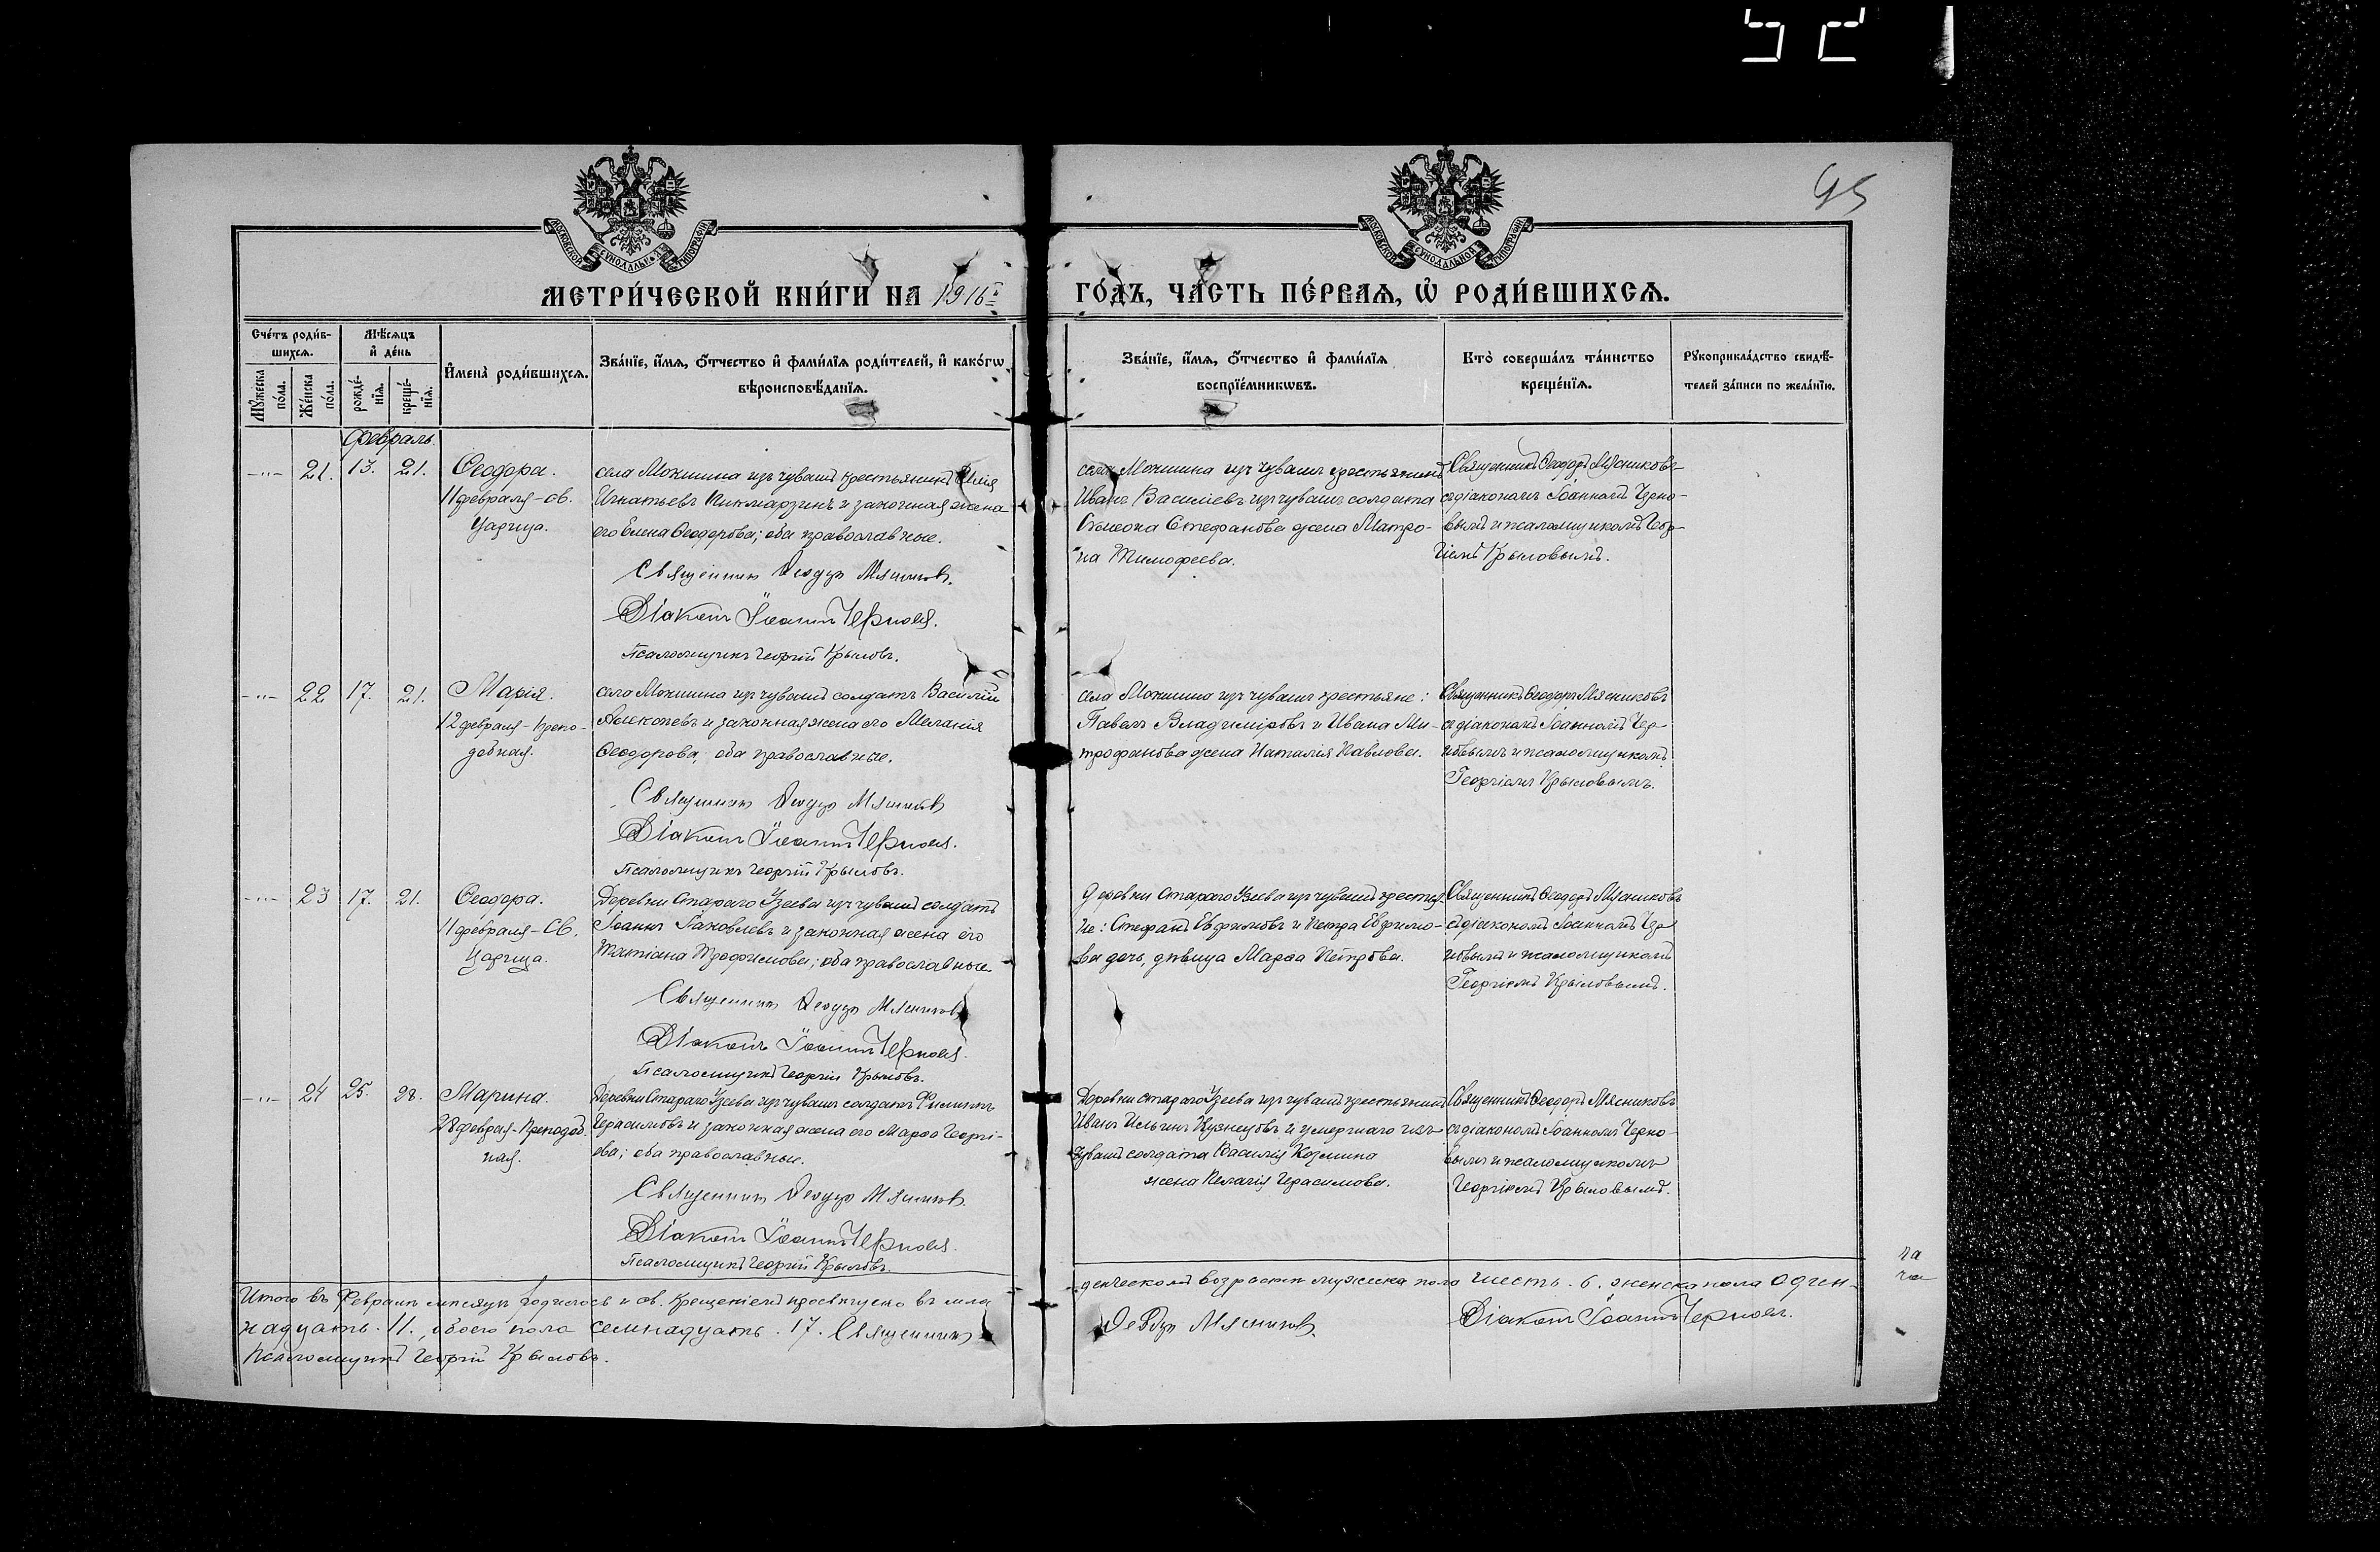 52
95
МОСКОВСКОЙ СѴНОДАЛЬНОЙ ТИПОГРАФІИ
МОСКОВСКОЙ СѴНОДАЛЬНОЙ ТИПОГРАФІИ
МЕТРИ́ЧЕСКОЙ КНИ́ГИ НА 1916й
ГО́ДЪ, ЧА́СТЬ ПЕ́РВАѦ, Ѽ РОДИ́ВШИХСѦ.
Сче́тъ роди́в-
шихсѧ.
Мꙋ́жеска по́ла.
Же́нска по́ла.
Мѣ́сѧцъ
и҆ де́нь
рожде́-
нїѧ.
креще́-
нїѧ.
И҆мена̀ роди́вшихсѧ.
Зва́нїе, и҆́мѧ, ѻ҆́тчество и҆ фами́лїѧ роди́телей, и҆ како́гѡ
вѣроисповѣ́данїѧ.
Зва́нїе, и҆́мѧ, ѻ҆́тчество и҆ фами́лїѧ
воспрїе́мникѡвъ.
Кто̀ соверша́лъ та́инство
креще́нїѧ.
Рꙋкоприкла́дство свидѣ́-
телей за́писи по жела́нїю.
Февраль.
-"- 21. 13. 21.
Ѳеодора.
11 февраля - св.
Царица.
села Мокшина изъ чувашъ крестьянинъ Илія
Игнатьевъ Пикмарзинъ и законная жена
его Елена Ѳеодорова; оба православные.
Священникъ Ѳеодоръ Мясниковъ.
Діаконъ Іоаннъ Черновъ.
Псаломщикъ Георгій Крыловъ.
села Мокшина изъ чувашъ крестьянинъ
Иванъ Василіевъ изъ чувашъ солдата
Стефанова жена Матро-
на Тимофеева.
Священникъ Ѳеодоръ Мясниковъ
съ діакономъ Іоанномъ Черно-
вымъ и псаломщикомъ Геор-
гіемъ Крыловымъ.
-"- 22 17. 21.
Марія.
12 февраля - препо-
добная.
села Мокшина изъ чувашъ солдатъ Василій
и законная жена его Меланія
Ѳеодорова; оба православные.
Священникъ Ѳеодоръ Мясниковъ
Діаконъ Іоаннъ Черновъ.
Псаломщикъ Георгій Крыловъ.
села Мокшина изъ чувашъ крестьяне:
Павелъ Владиміровъ и Ивана Ми-
трофанова жена Наталія Павлова.
Священникъ Ѳеодоръ Мясниковъ
съ діакономъ Іоанномъ Чер-
новымъ и псаломщикомъ
Георгіемъ Крыловымъ.
-"- 23 17. 21.
Ѳеодора.
11 февраля - Св.
Царица.
Деревни Стараго Узеева изъ чувашъ солдатъ
Іоаннъ Іаковлевъ и законная жена его
Татіана Трофимова; оба православные.
Священникъ Ѳеодоръ Мясниковъ
Діаконъ Іоаннъ Черновъ.
Псаломщикъ Георгій Крыловъ.
Деревни Стараго Узеева изъ чувашъ крестья-
не: Стефанъ Евфимовъ и Петра Евфимо-
ва дочь, дѣвица Марѳа Петрова.
Священникъ Ѳеодоръ Мясниковъ
съ діакономъ Іоанномъ Чер-
новымъ и псаломщикомъ
Георгіемъ Крыловымъ.
-"- 24 25. 28.
Марина.
28 февраля - Преподоб-
ная.
Деревни Стараго Узеева изъ чувашъ солдатъ Филиппъ
Герасимовъ и законная жена его Марѳа Георгі-
ева; оба православные.
Священникъ Ѳеодоръ Мясниковъ.
Діаконъ Іоаннъ Черновъ.
Псаломщикъ Георгій Крыловъ.
Деревни Стараго Узеева изъ чувашъ крестьянинъ
Иванъ Ильинъ Кузнецовъ и умершаго изъ
чувашъ солдата Василія Козмина
жена Пелагія Герасимова.
Священникъ Ѳеодоръ Мясниковъ
съ діакономъ Іоанномъ Черно-
вымъ и псаломщикомъ
Георгіемъ Крыловымъ.
Итого въ Февралѣ мѣсяцѣ родилось и св. Крещеніемъ просвѣщено въ мла
денческомъ возрастѣ мужеска пола шесть. 6. женска пола один-
надцать. 11., обоего пола семнадцать. 17. Священникъ
Ѳеодоръ Мясниковъ. Діаконъ Іоаннъ Черновъ.
Псаломщикъ Георгій Крыловъ.